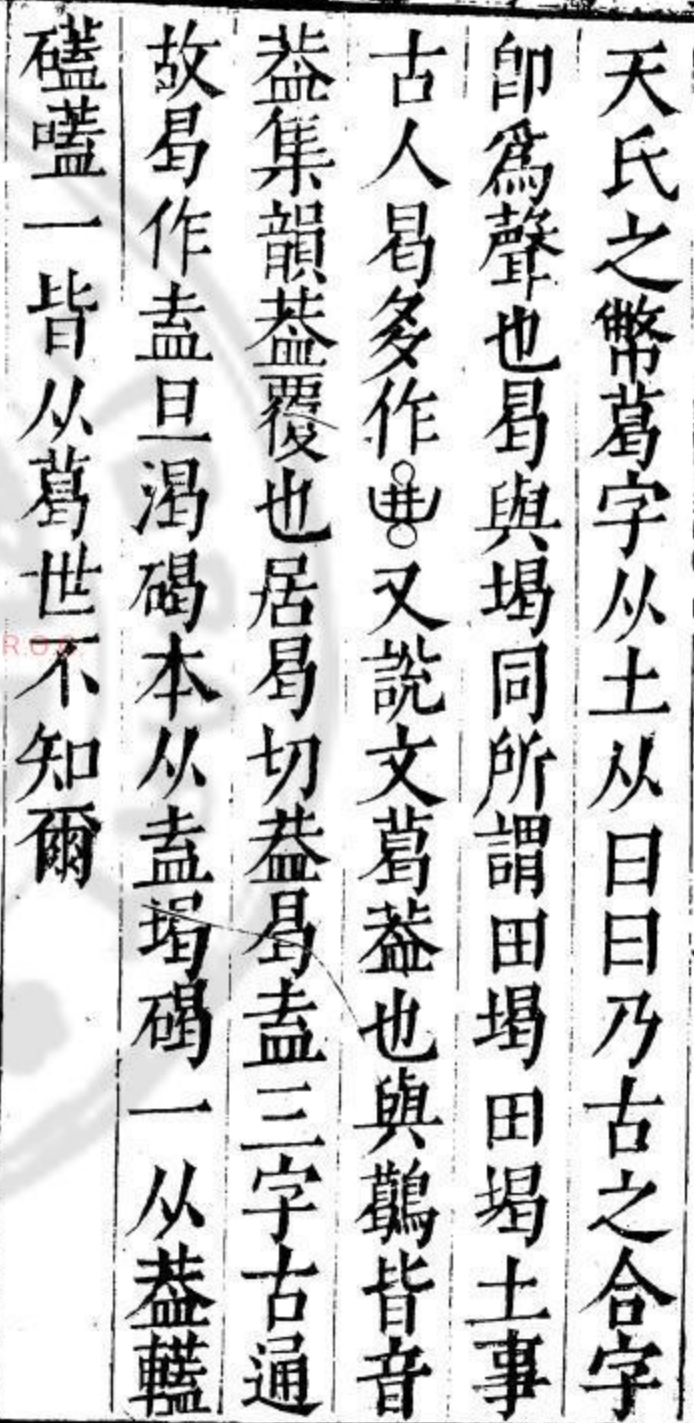 天氏之幣葛字从土从曰曰乃古之合字
卽爲聲也曷與堨同所謂田堨田堨土事
古人曷多作又說文葛葢也與鶷皆音
葢集韻葢覆也居曷切葢曷盍三字古通
故曷作盍旦渴碣本从盍堨碣一从葢轞
礚嗑一皆从葛世不知爾